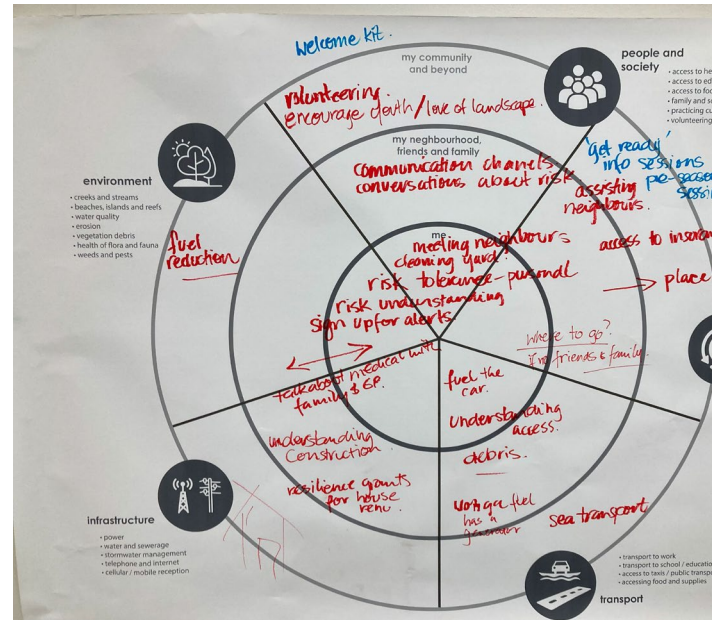 Welcome kit.
my community
and beyond
people and
society
• access to he
• access to ed
• access to foo
• family and so
• practicing cu
• volunteering
volunteering.
encourage youth/love of landscape.
my neighbourhood,
friends and family
communication channels
conversations about risk
'get ready'
info sessions
pre-season
sessi
assisting
neighbours.
environment
• creeks and streams
• beaches, islands and reefs
• water quality
• erosion
• vegetation debris
• health of flora and fauna
• weeds and pests
fuel
reduction
me
meeting neighbours
cleaning yard
risk tolerance - personal
risk understanding
sign up for alerts.
access to insuran
place
where to go?
if no friends & family.
talk about medical with
family & GP.
understanding
construction.
resilience grants
for house
renu.
fuel the
car.
understanding
access.
debris.
fuel
has a
generator
sea transport
infrastructure
• power
• water and sewerage
• stormwater management
• telephone and internet
• cellular / mobile reception
• transport to work
• transport to school / educatio
• access to taxis / public transpo
• accessing food and supplies
transport